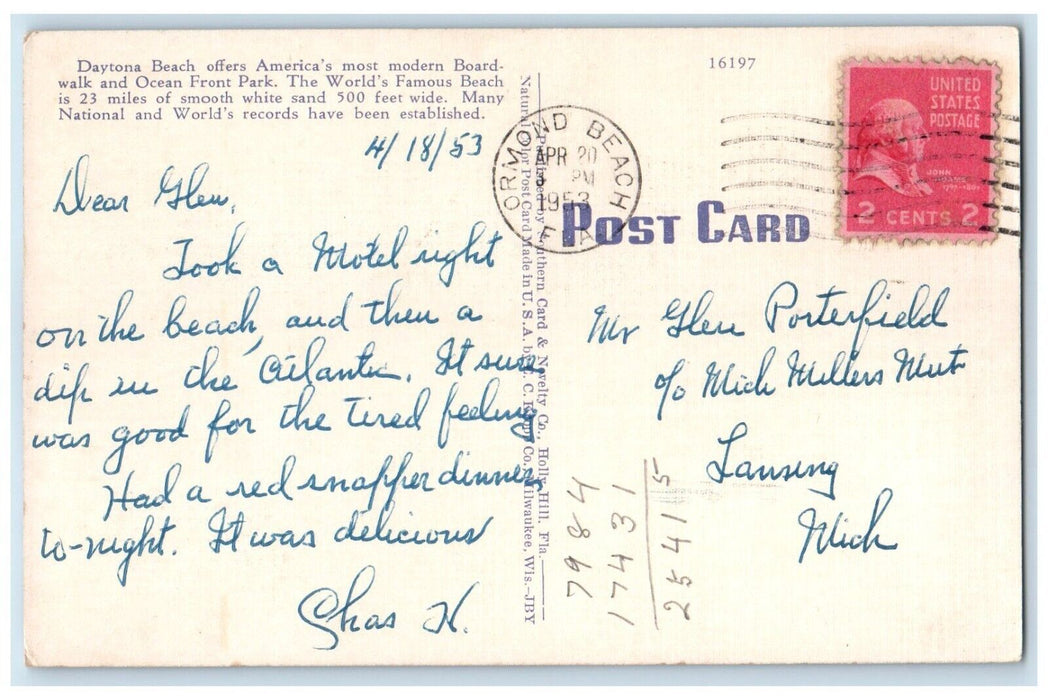 Daytona Beach offers America's most modern Board-
walk and Ocean Front Park. The World's Famous Beach
is 23 miles of smooth white sand 500 feet wide. Many
National and World's records have been established.
4/18/53
Dear Glen,
Took a Motel right
on the beach, and then a
dip in the Atlantic. It sure
was good for the tired feeling
Had a red snapper dinner
to-night. It was delicious
Chas H.
Southern Card & Novelty Co., Holly Hill, Fla.
Natural Color Post Card Made in U. S. A. by E. C. Kropp Co., Milwaukee, Wis.—JBY
ORMOND BEACH
APR 20
PM
1953
FLA
16197
UNITED
STATES
POSTAGE
JOHN
ADAMS
1797-1801
2 CENTS 2
POST CARD
Mr Glen Porterfield
c/o Mich Millers Mut
Lansing
Mich
7984
17431
25415